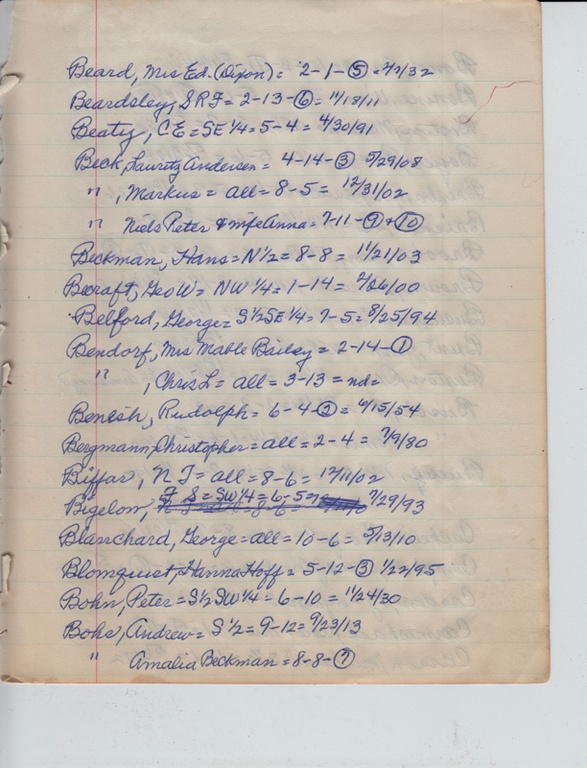 Beard, Mrs Ed. (Dixon) = 2-1-⑤ = 7/1/32
Beardsley, S R F = 2-13-⑥ = 11/18/11
Beaty, C E = SE 1/4 = 5-4 = 4/30/91
Beck, Lauritz Andersen = 4-14-③ 5/29/08
" , Markus = all = 8-5 = 12/31/02
" Niels Peter & wife Anna = 7-11-⑨ & ⑩
Beckman, Hans = N 1/2 = 8-8 = 11/21/03
Becraft, Geo W = NW 1/4 = 1-14 = 2/26/00
Belford, George = S 1/2 SE 1/4 = 7-5 = 8/25/94
Bendorf, Mrs Mable Bailey = 2-14-①
" , Chris L = all = 3-13 = nd =
Benesh, Rudolph = 6-4-② = 6/15/54
Bergmann, Christopher = all = 2-4 = 7/9/80
Biffar, N F = all = 8-6 = 12/11/02
Bigelow, F S = SW 1/4 = 6-5 = 7/29/93
Blanchard, George = all = 10-6 = 5/13/10
Blomquist, Hanna Hoff = 5-12-③ 1/22/95
Bohn, Peter = S 1/2 SW 1/4 = 6-10 = 11/24/30
Bohs, Andrew = S 1/2 = 9-12 = 9/23/13
" Amalia Beckman = 8-8-⑦